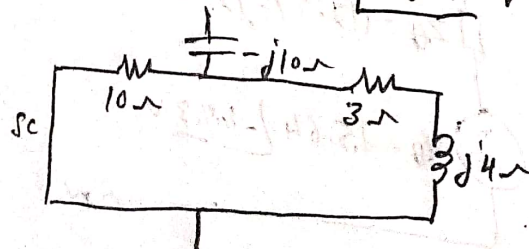 -j10Ω
10Ω
3Ω
SC
j4Ω